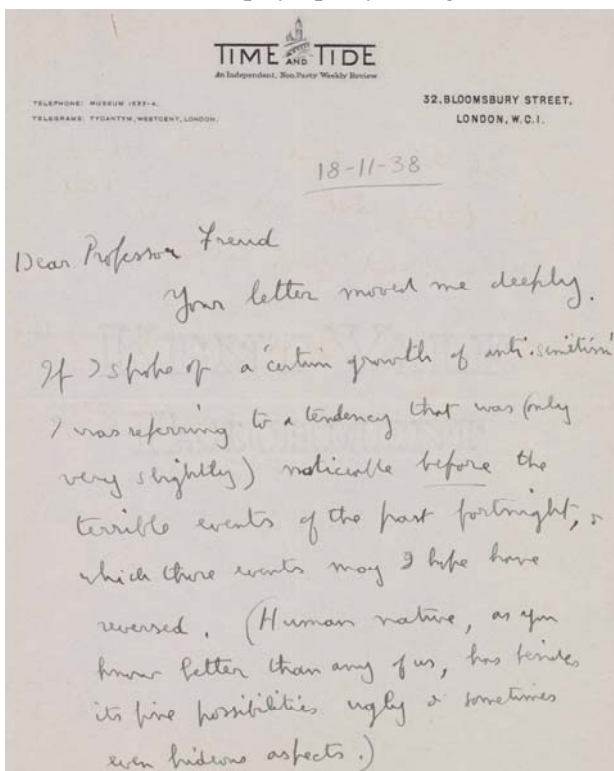 TIME AND TIDE
An Independent, Non-Party Weekly Review
TELEPHONE: MUSEUM 1533-4.
TELEGRAMS: TYDANTYM, WESTCENT, LONDON.
32, BLOOMSBURY STREET,
LONDON, W.C.1.
18-11-38
Dear Professor Freud
Your letter moved me deeply.
If I spoke of a 'certain growth of anti-semitism'
I was referring to a tendency that was (only
very slightly) noticeable before the
terrible events of the past fortnight, &
which those events may I hope have
reversed. (Human nature, as you
know better than any of us, has besides
its fine possibilities ugly & sometimes
even hideous aspects.)